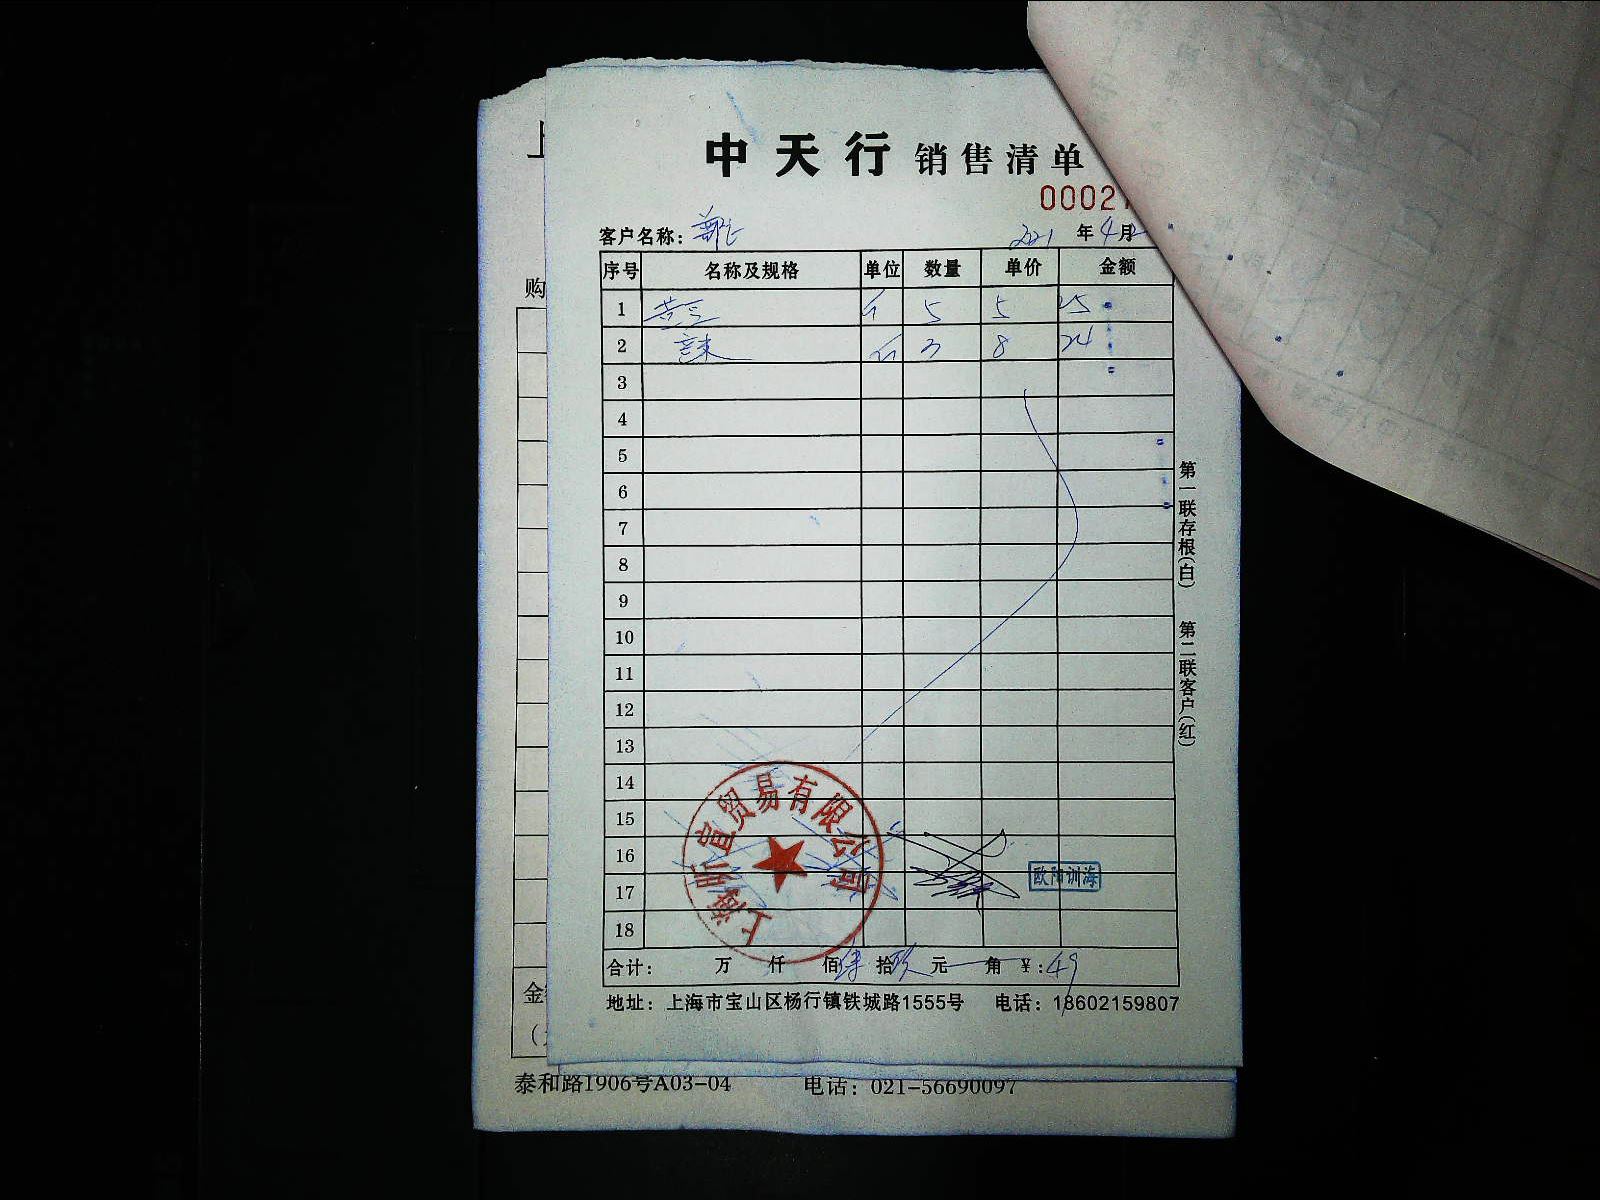 中天行 销售清单
0002
客户名称：
2021 年 4 月
序号 名称及规格 单位 数量 单价 金额
1 斤 5 5 25
2 斤 3 8 24
3
4
5
6
7
8
9
10
11
12
13
14
15
16
17
18
上海昕宣贸易有限公司
欧阳训海
合计： 万 仟 佰 肆 拾 玖 元 角 ¥：49
地址：上海市宝山区杨行镇铁城路1555号 电话：18602159807
第一联存根（白） 第二联客户（红）
购
金
泰和路1906号A03-04 电话：021-56690097